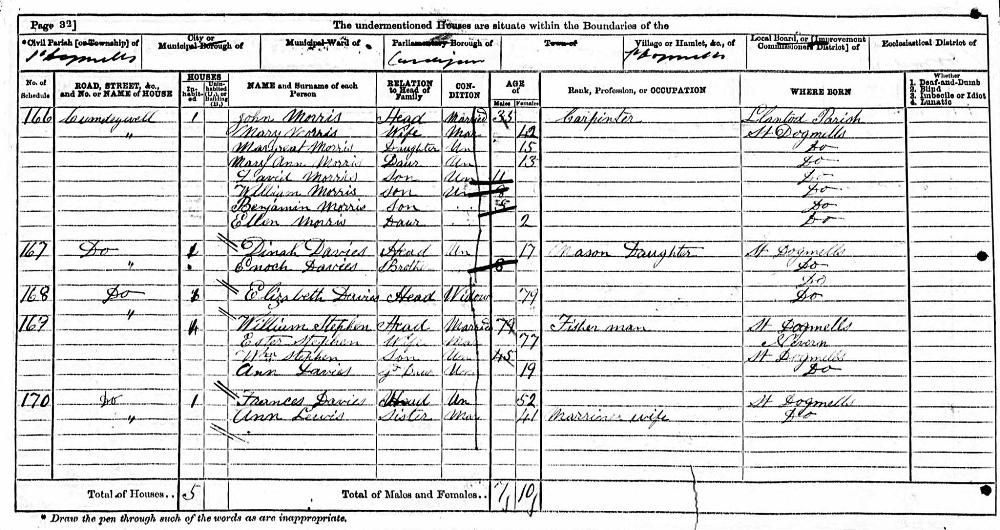 Page 32] The undermentioned Houses are situate within the Boundaries of the
*Civil Parish [or Township] of City or Municipal Borough of Municipal Ward of Parliamentary Borough of Town of Village or Hamlet, &c., of Local Board, or [Improvement Commissioners District] of Ecclesiastical District of
St Dogmells Cardigan St Dogmells
No. of Schedule ROAD, STREET, &c., and No. or NAME of HOUSE HOUSES In-habit-ed Unin-habited (U.), or Building (B.) NAME and Surname of each Person RELATION to Head of Family CON-DITION AGE of Males Females Rank, Profession, or OCCUPATION WHERE BORN Whether 1. Deaf-and-Dumb 2. Blind 3. Imbecile or Idiot 4. Lunatic
166 1 John Morris Head Married Carpenter Llantood Parish
" Mary Morris Wife Mar 42 St Dogmells
Margreat Morris Daughter Un 15 Do
Mary Ann Morris Daur Un 13 Do
David Morris Son Un 11 Do
William Morris Son Un Do
Benjamin Morris Son Do
Ellen Morris Daur 2 Do
167 Do 1 Dinah Davies Head Un 17 Mason Daughter St Dogmells
" Enoch Davies Brother 8 Do
Do
168 Do 1 Elizabeth Davies Head Widow 79 Do
"
169 William Stephen Head Married 79 Fisherman St Dogmells
Ester Stephen Wife Mar 77 Nevern
Wm Stephen Son Un 45 St Dogmells
Ann Davies Un 19 Do
170 Do 1 Frances Davies Head Un 52 St Dogmells
" Ann Lewis Sister Mar 41 Marriner wife Do
Total of Houses.. 5 Total of Males and Females.. 7 10
* Draw the pen through such of the words as are inappropriate.